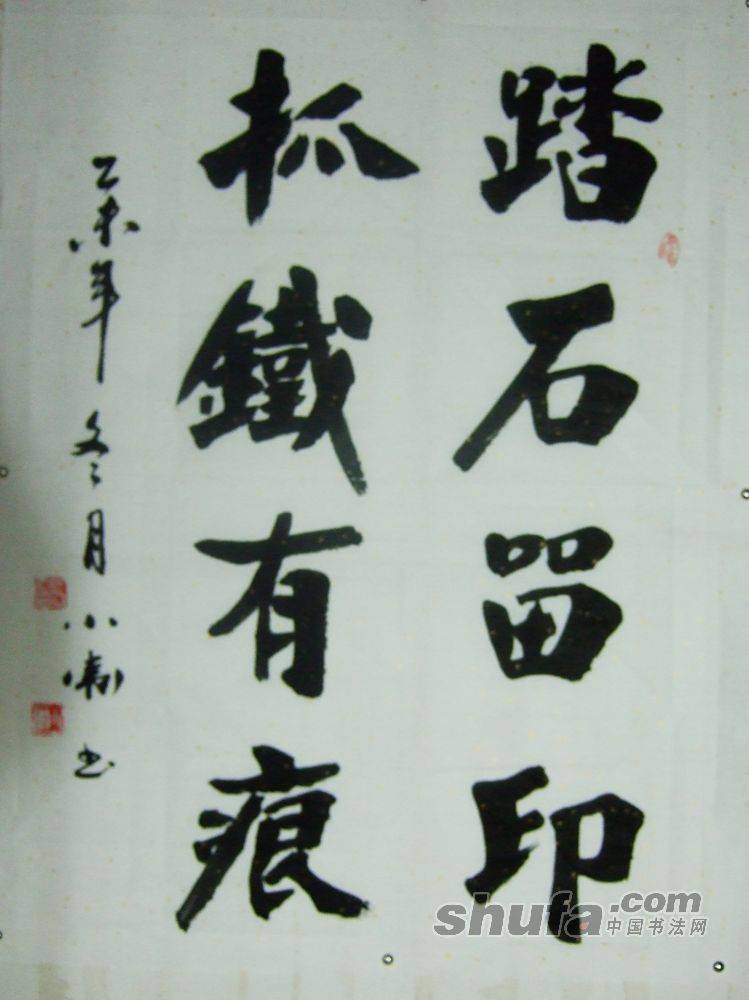 踏石留印
抓鐵有痕
乙未年冬月小衛书
shufa.com
中国书法网